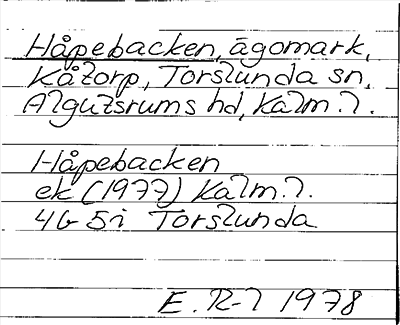 Håpebacken, ägomark,
Kåtorp, Torslunda sn,
Algutsrums hd, Kalm. l.
Håpebacken
ek (1977) Kalm. l.
4G 5i Torslunda
E. R-l 1978